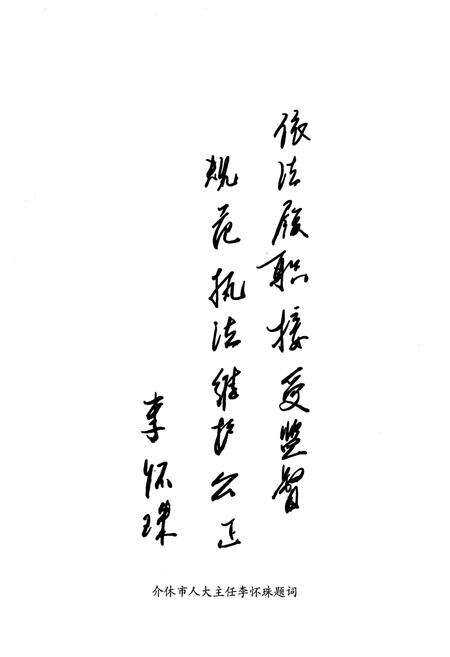 依法履职接受监督
规范执法维护公正
李怀珠
介休市人大主任李怀珠题词